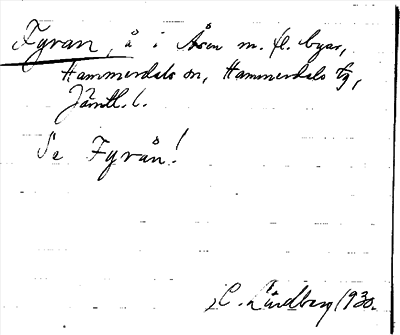 Fyran, å i Åsen m. fl. byar,
Hammerdals sn, Hammerdals tg,
Jämtl. l.
Se Fyrån!
C. Lindberg 1930.